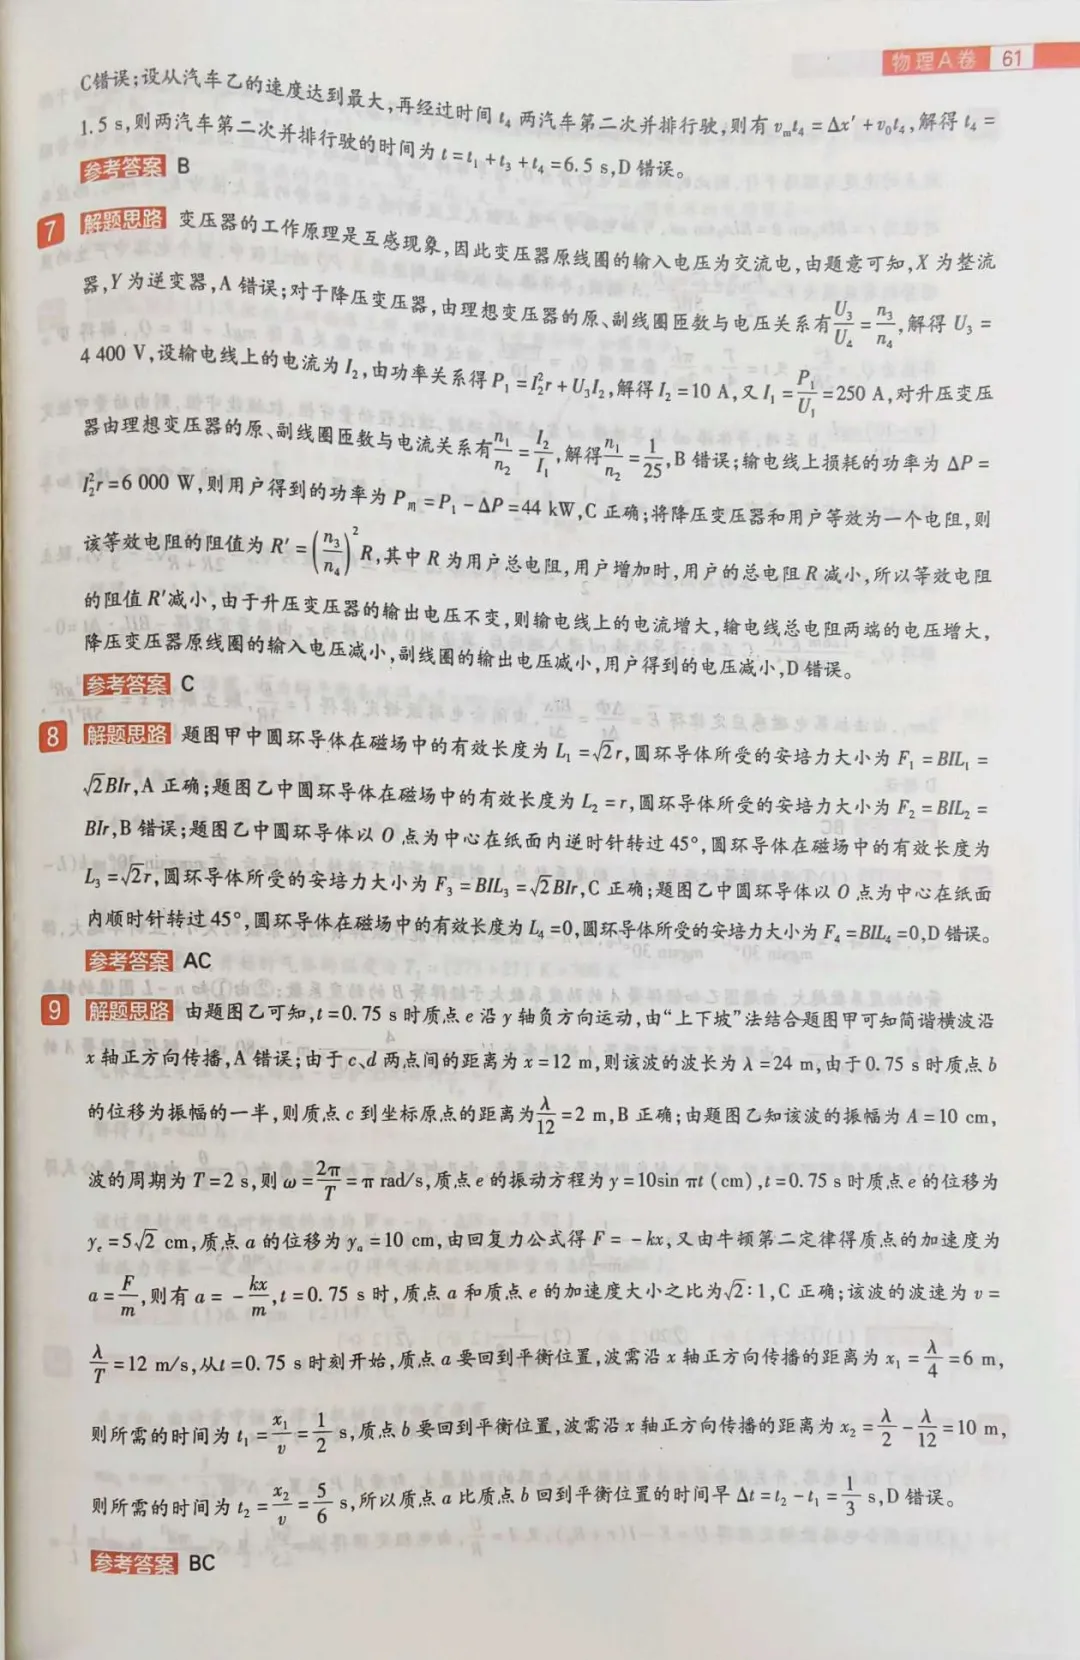 物理A卷 61
C错误;设从汽车乙的速度达到最大,再经过时间 t₄ 两汽车第二次并排行驶,则有 vₘt₄ = Δx′ + v₀t₄,解得 t₄ =
1.5 s,则两汽车第二次并排行驶的时间为 t = t₁ + t₃ + t₄ = 6.5 s,D 错误。
参考答案 B
7 解题思路 变压器的工作原理是互感现象,因此变压器原线圈的输入电压为交流电,由题意可知,X 为整流
器,Y 为逆变器,A 错误;对于降压变压器,由理想变压器的原、副线圈匝数与电压关系有 U₃/U₄ = n₃/n₄,解得 U₃ =
4 400 V,设输电线上的电流为 I₂,由功率关系得 P₁ = I₂²r + U₃I₂,解得 I₂ = 10 A,又 I₁ = P₁/U₁ = 250 A,对升压变压
器由理想变压器的原、副线圈匝数与电流关系有 n₁/n₂ = I₂/I₁,解得 n₁/n₂ = 1/25,B 错误;输电线上损耗的功率为 ΔP =
I₂²r = 6 000 W,则用户得到的功率为 Pₘ = P₁ − ΔP = 44 kW,C 正确;将降压变压器和用户等效为一个电阻,则
该等效电阻的阻值为 R′ = (n₃/n₄)²R,其中 R 为用户总电阻,用户增加时,用户的总电阻 R 减小,所以等效电阻
的阻值 R′减小,由于升压变压器的输出电压不变,则输电线上的电流增大,输电线总电阻两端的电压增大,
降压变压器原线圈的输入电压减小,副线圈的输出电压减小,用户得到的电压减小,D 错误。
参考答案 C
8 解题思路 题图甲中圆环导体在磁场中的有效长度为 L₁ = √2r,圆环导体所受的安培力大小为 F₁ = BIL₁ =
√2BIr,A 正确;题图乙中圆环导体在磁场中的有效长度为 L₂ = r,圆环导体所受的安培力大小为 F₂ = BIL₂ =
BIr,B 错误;题图乙中圆环导体以 O 点为中心在纸面内逆时针转过 45°,圆环导体在磁场中的有效长度为
L₃ = √2r,圆环导体所受的安培力大小为 F₃ = BIL₃ = √2BIr,C 正确;题图乙中圆环导体以 O 点为中心在纸面
内顺时针转过 45°,圆环导体在磁场中的有效长度为 L₄ = 0,圆环导体所受的安培力大小为 F₄ = BIL₄ = 0,D 错误。
参考答案 AC
9 解题思路 由题图乙可知,t = 0.75 s 时质点 e 沿 y 轴负方向运动,由“上下坡”法结合题图甲可知简谐横波沿
x 轴正方向传播,A 错误;由于 c、d 两点间的距离为 x = 12 m,则该波的波长为 λ = 24 m,由于 0.75 s 时质点 b
的位移为振幅的一半,则质点 c 到坐标原点的距离为 λ/12 = 2 m,B 正确;由题图乙知该波的振幅为 A = 10 cm,
波的周期为 T = 2 s,则 ω = 2π/T = π rad/s,质点 e 的振动方程为 y = 10sin πt (cm),t = 0.75 s 时质点 e 的位移为
yₑ = 5√2 cm,质点 a 的位移为 yₐ = 10 cm,由回复力公式得 F = − kx,又由牛顿第二定律得质点的加速度为
a = F/m,则有 a = − kx/m,t = 0.75 s 时,质点 a 和质点 e 的加速度大小之比为 √2∶1,C 正确;该波的波速为 v =
λ/T = 12 m/s,从 t = 0.75 s 时刻开始,质点 a 要回到平衡位置,波需沿 x 轴正方向传播的距离为 x₁ = λ/4 = 6 m,
则所需的时间为 t₁ = x₁/v = 1/2 s,质点 b 要回到平衡位置,波需沿 x 轴正方向传播的距离为 x₂ = λ/2 − λ/12 = 10 m,
则所需的时间为 t₂ = x₂/v = 5/6 s,所以质点 a 比质点 b 回到平衡位置的时间早 Δt = t₂ − t₁ = 1/3 s,D 错误。
参考答案 BC